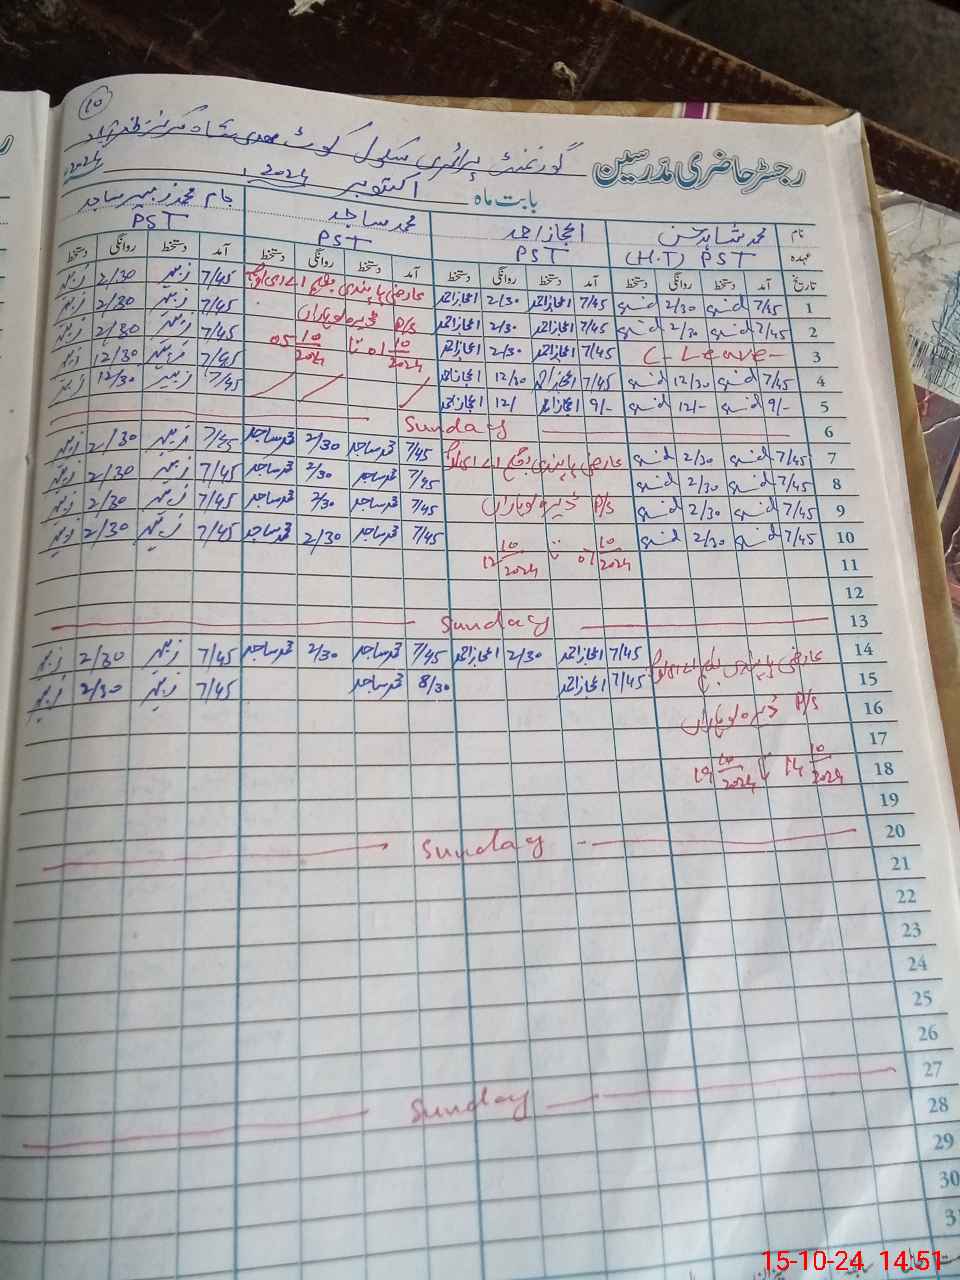 10
رجسٹر حاضری مدرسین
گورنمنٹ پرائمری سکول کوٹ
بابت ماہ اکتوبر 2024
2024
نام محمد شاہد حسن اعجاز احمد محمد ساجد جام محمد زبیر ساجد
عہدہ PST (H.T) PST PST PST
تاریخ آمد دستخط روانگی دستخط آمد دستخط روانگی دستخط آمد دستخط روانگی دستخط آمد دستخط روانگی دستخط
1 7/45 2/30 7/45 اعجاز احمد 2/30 اعجاز احمد عارضی پابندی بحکم اے ای او 7/45 زبیر 2/30 زبیر
2 7/45 2/30 7/45 اعجاز احمد 2/30 اعجاز احمد P/S ڈیرہ لوہاراں 7/45 زبیر 2/30 زبیر
3 C-Leave- 7/45 اعجاز احمد 2/30 اعجاز احمد 01 10/2024 تا 05 10/2024 7/45 زبیر 2/30 زبیر
4 7/45 12/30 7/45 اعجاز احمد 12/30 اعجاز احمد 7/45 زبیر 12/30 زبیر
5 9/- 12/- 9/- اعجاز احمد 12/ اعجاز احمد 7/45 زبیر 12/30 زبیر
6 Sunday
7 7/45 2/30 عارضی پابندی بحکم اے ای او 7/45 محمد ساجد 2/30 محمد ساجد 7/45 زبیر 2/30 زبیر
8 7/45 2/30 7/45 محمد ساجد 2/30 محمد ساجد 7/45 زبیر 2/30 زبیر
9 7/45 2/30 P/S ڈیرہ لوہاراں 7/45 محمد ساجد 2/30 محمد ساجد 7/45 زبیر 2/30 زبیر
10 7/45 2/30 07 10/2024 تا 12 10/2024 7/45 محمد ساجد 2/30 محمد ساجد 7/45 زبیر 2/30 زبیر
11
12
13 Sunday
14 عارضی پابندی بحکم اے ای او 7/45 اعجاز احمد 2/30 اعجاز احمد 7/45 محمد ساجد 2/30 محمد ساجد 7/45 زبیر 2/30 زبیر
15 7/45 اعجاز احمد 8/30 محمد ساجد 7/45 زبیر 2/30 زبیر
16 P/S ڈیرہ لوہاراں
17
18 14 10/2024 تا 19 10/2024
19
20 Sunday
21
22
23
24
25
26
27 Sunday
28
29
30
31
15-10-24 14:51